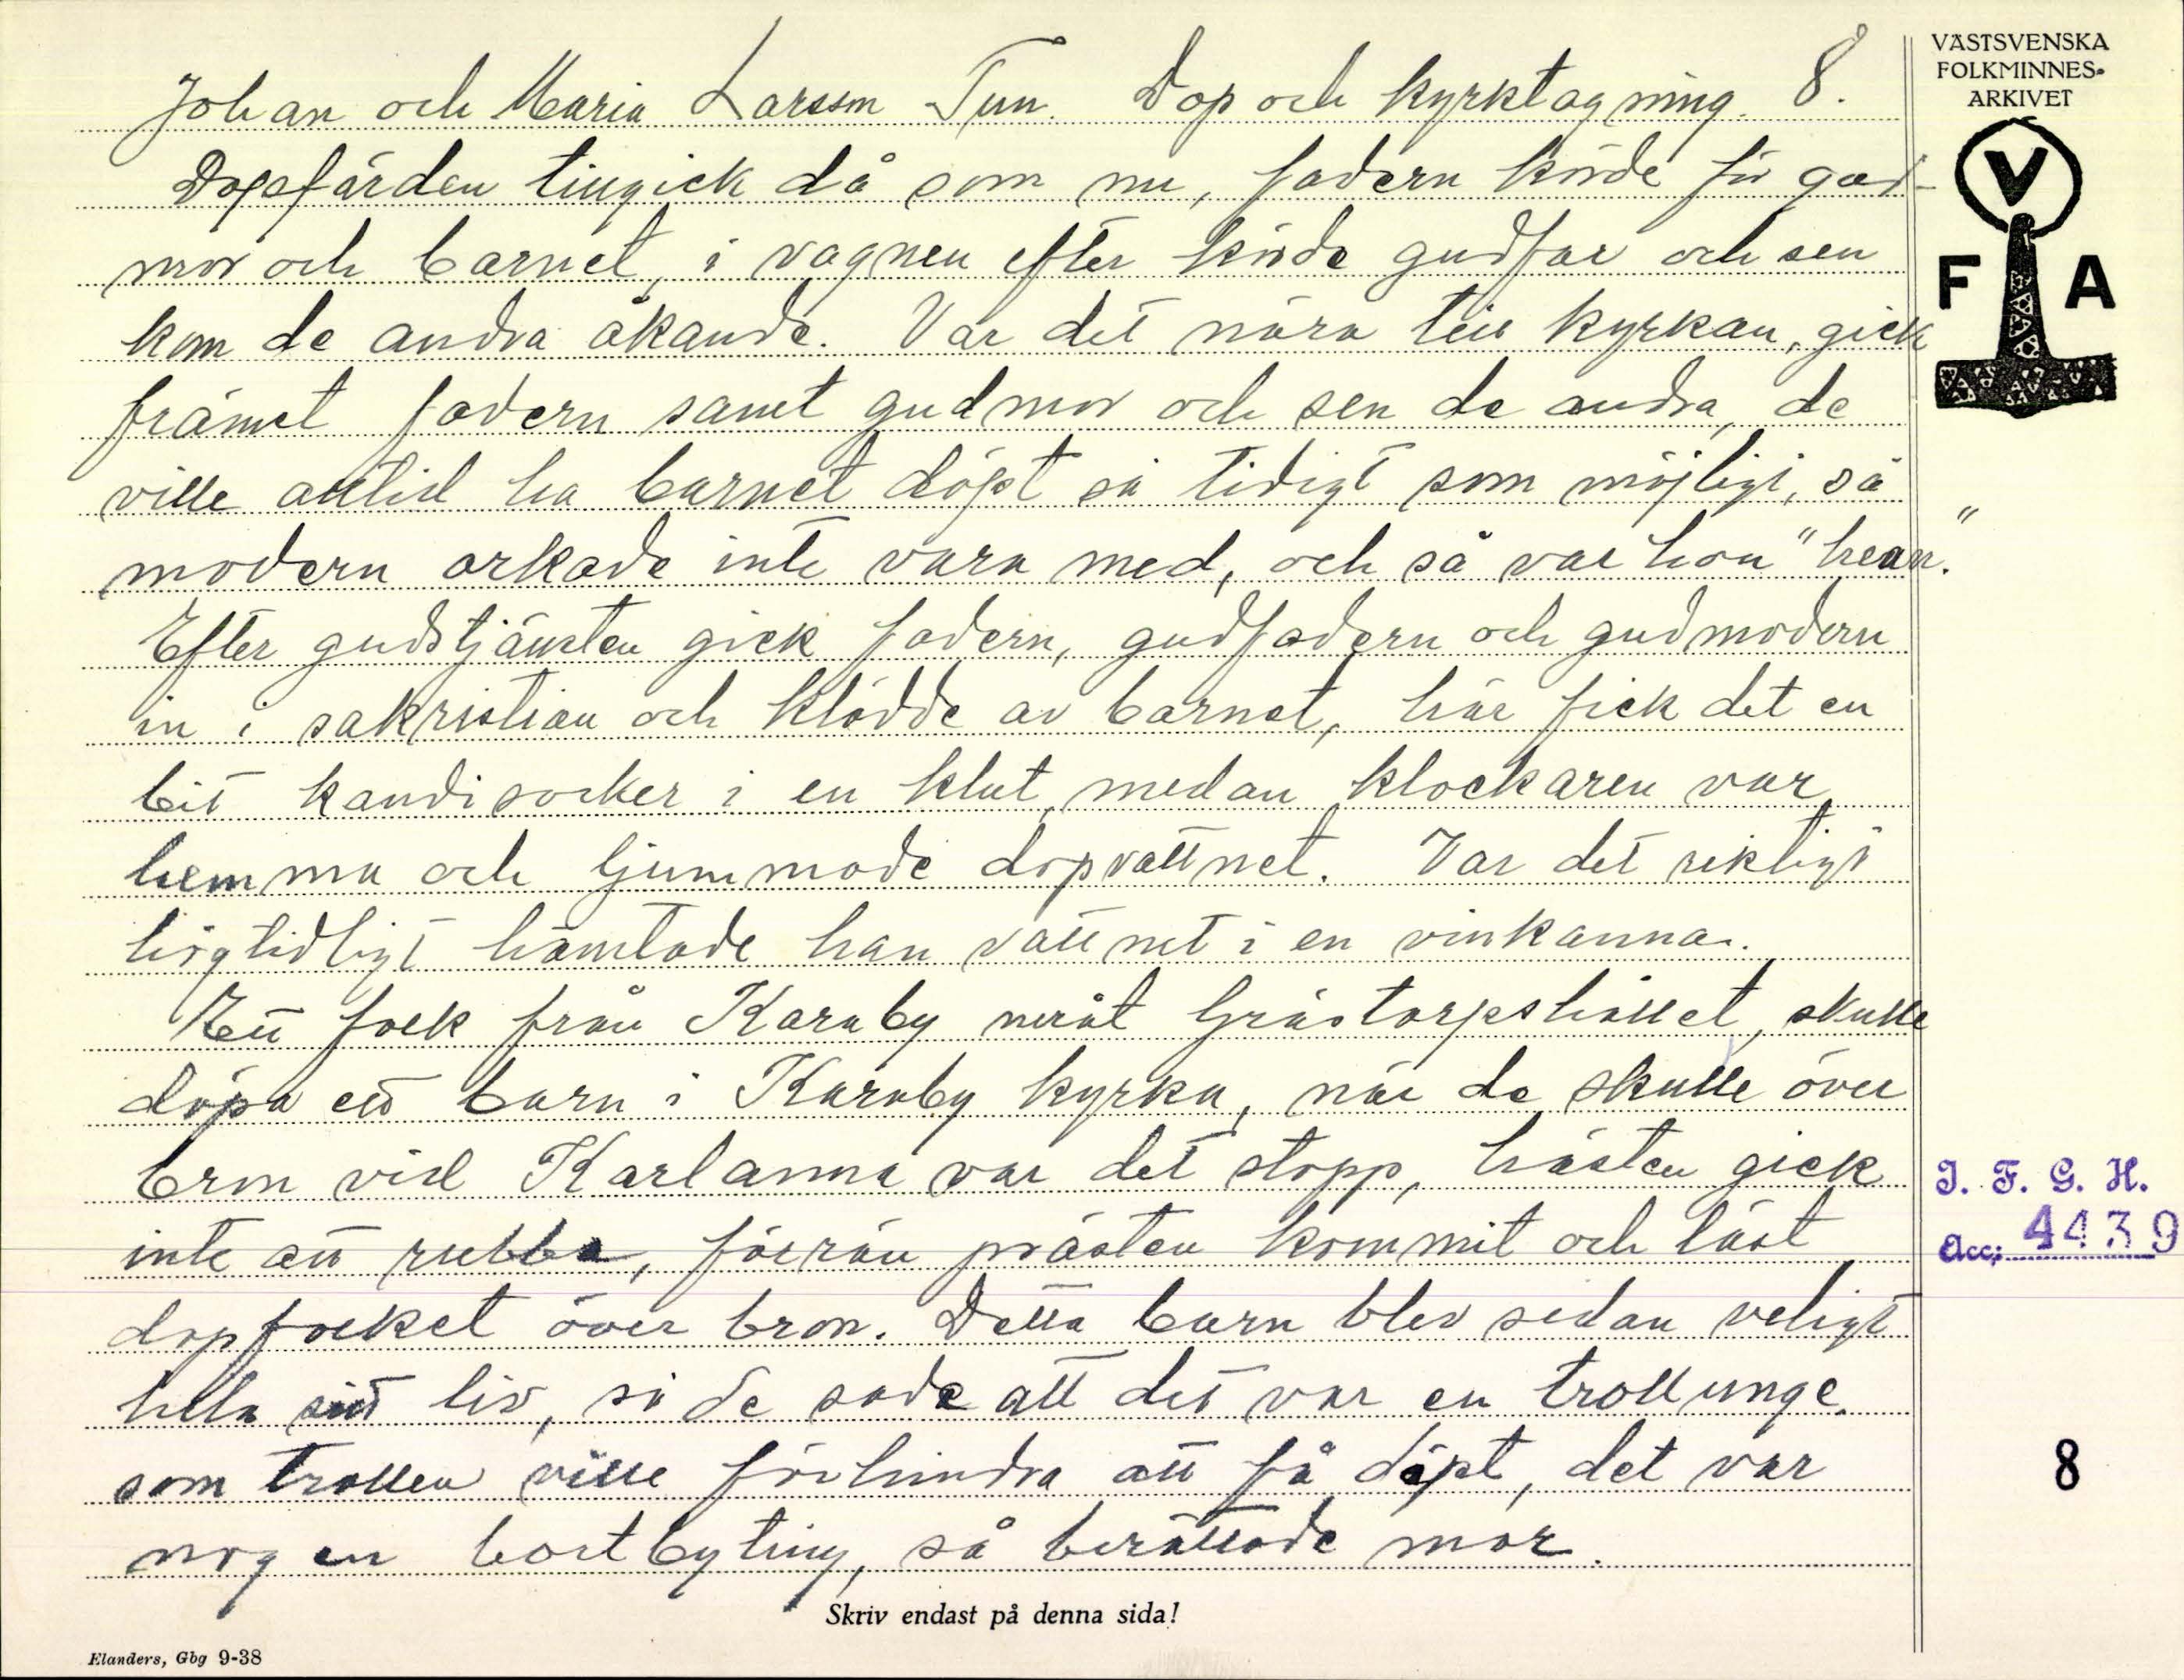 Johan och Maria Larsson Tun. Dop och kyrktagning. 8.
Dopsfärden tillgick då som nu, fadern körde för gud-
mor och barnet, i vagnen efter körde gudfar och sen
kom de andra åkande. Var det nära till kyrkan, gick
främst fadern samt gudmor och sen de andra, de
ville alltid ha barnet döpt så tidigt som möjligt, så
modern orkade inte vara med, och så var hon "hean."
Efter gudstjänsten gick fadern, gudfadern och gudmodern
in i sakristian och klädde av barnet, här fick det en
bit kandisocker i en klut, medan klockaren var
hemma och ljummade dopvattnet. Var det riktigt
högtidligt hämtade han vattnet i en vinkanna.
Ett folk från Karaby neråt Grästorpshållet, skulle
döpa ett barn i Karaby kyrka, när de skulle över
bron vid Karlanna var det stopp, hästen gick
inte att rubba, förrän prästen kommit och läst
dopfolket över bron. Detta barn blev sedan veligt
hela sitt liv, så de sade att det var en trollunge
som trollen ville förhindra att få döpt, det var
nog en bortbyting, så berättade mor.
Skriv endast på denna sida!
Elanders, Gbg 9-38
VÄSTSVENSKA
FOLKMINNES-
ARKIVET
V
F A
I. F. G. H.
Acc: 4439
8